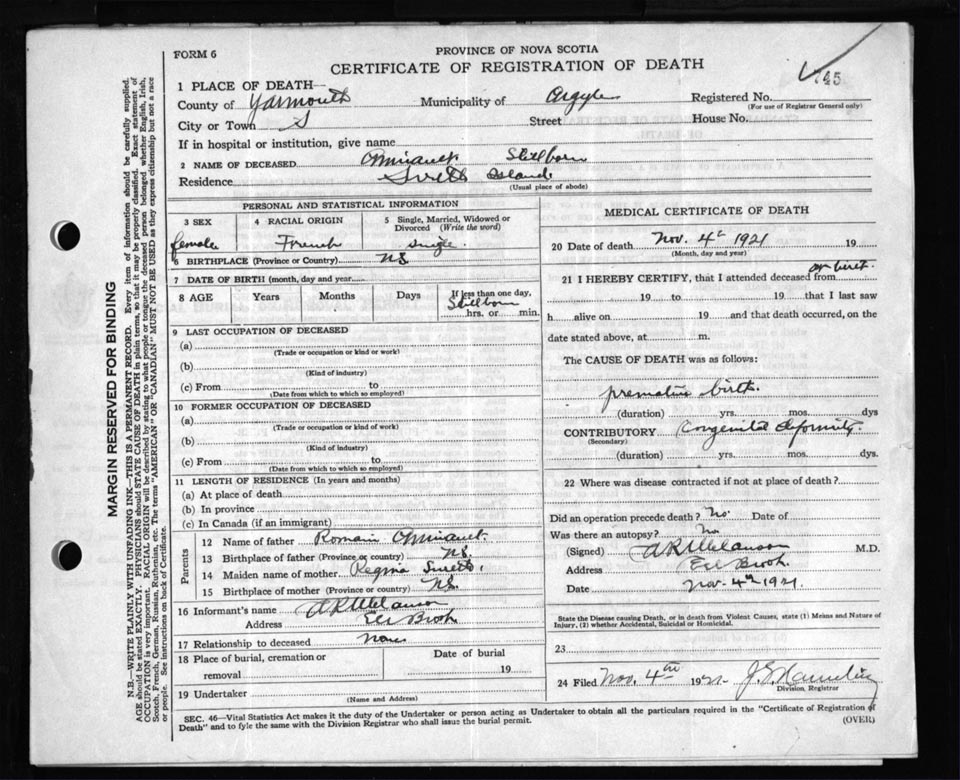 PROVINCE OF NOVA SCOTIA
FORM 6
CERTIFICATE OF REGISTRATION OF DEATH
45
1 PLACE OF DEATH—
County of Yarmouth Municipality of Argyle Registered No.
(For use of Registrar General only)
City or Town S Street House No.
If in hospital or institution, give name
2 NAME OF DECEASED Amirault Stillborn
Residence Surette Island
(Usual place of abode)
PERSONAL AND STATISTICAL INFORMATION
3 SEX 4 RACIAL ORIGIN 5 Single, Married, Widowed or Divorced (Write the word)
female French single
6 BIRTHPLACE (Province or Country) NS
7 DATE OF BIRTH (month, day and year)
8 AGE Years Months Days If less than one day,
Stillborn
hrs. or min.
9 LAST OCCUPATION OF DECEASED
(a)
(Trade or occupation or kind or work)
(b)
(Kind of industry)
(c) From to
(Date from which to which so employed)
10 FORMER OCCUPATION OF DECEASED
(a)
(Trade or occupation or kind of work)
(b)
(Kind of industry)
(c) From to
(Date from which to which so employed)
11 LENGTH OF RESIDENCE (In years and months)
(a) At place of death
(b) In province
(c) In Canada (if an immigrant)
Parents
12 Name of father Romain Amirault
13 Birthplace of father (Province or country) NS
14 Maiden name of mother Regina Surette
15 Birthplace of mother (Province or country) NS
16 Informant's name A R Melanson
Address Eel Brook
17 Relationship to deceased None
18 Place of burial, cremation or removal Date of burial
19
19 Undertaker
(Name and Address)
MEDICAL CERTIFICATE OF DEATH
20 Date of death Nov. 4th 1921 19
(Month, day and year)
at birth
21 I HEREBY CERTIFY, that I attended deceased from
19 to 19 that I last saw
h alive on 19 and that death occurred, on
date stated above, at m.
The CAUSE OF DEATH was as follows:
premature birth.
(duration) yrs. mos. dys
CONTRIBUTORY Congenital deformity.
(Secondary)
(duration) yrs. mos. dys.
22 Where was disease contracted if not at place of death?
Did an operation precede death? No Date of
Was there an autopsy? No
(Signed) A R Melanson M.D.
Address Eel Brook
Date Nov. 4th 1921.
State the Disease causing Death, or in death from Violent Causes, state (1) Means and Nature of
Injury, (2) whether Accidental, Suicidal or Homicidal.
23
24 Filed Nov. 4th 1921
Division Registrar
SEC. 46—Vital Statistics Act makes it the duty of the Undertaker or person acting as Undertaker to obtain all the particulars required in the "Certificate of Registration of
Death" and to fyle the same with the Division Registrar who shall issue the burial permit.
(OVER)
MARGIN RESERVED FOR BINDING
N.B.—WRITE PLAINLY WITH UNFADING INK—THIS IS A PERMANENT RECORD. Every item of information should be carefully supplied.
AGE should be stated EXACTLY. PHYSICIANS should STATE CAUSE OF DEATH in plain terms, so that it may be properly classified. Exact statement of
OCCUPATION is very important. RACIAL ORIGIN will be described by stating to what people or tongue the deceased person belonged whether English, Irish,
Scotch, French, German, Russian, Ruthenian, etc. The terms "AMERICAN" OR "CANADIAN" MUST NOT BE USED as they express citizenship but not a race
or people. See instructions on back of Certificate.